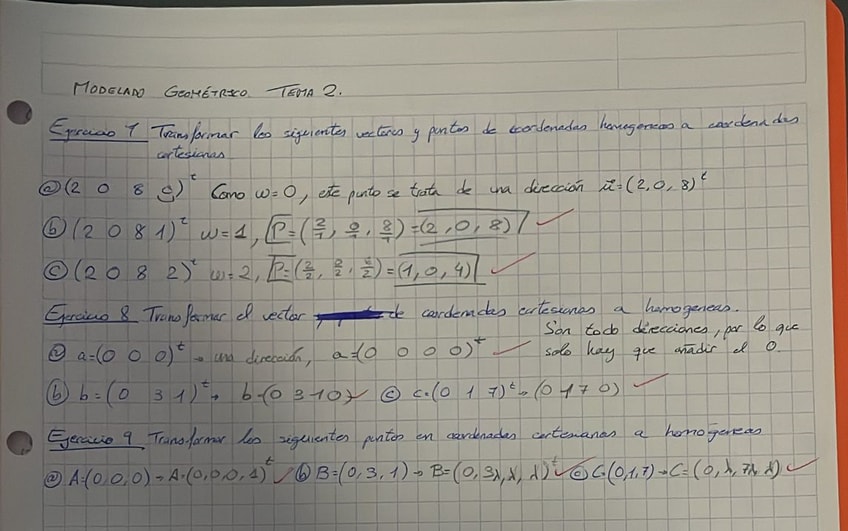 MODELADO GEOMÉTRICO. TEMA 2.
Ejercicio 7 Transformar los siguientes vectores y puntos de coordenadas homogeneas a coordenadas
cartesianas.
ⓐ (2 0 8 0)ᵗ Como w=0, este punto se trata de una dirección u⃗=(2,0,8)ᵗ
ⓑ (2 0 8 1)ᵗ w=1, P=(2/1, 0/1, 8/1)=(2,0,8)
ⓒ (2 0 8 2)ᵗ w=2, P=(2/2, 0/2, 8/2)=(1,0,4)
Ejercicio 8 Transformar el vector de coordenadas cartesianas a homogeneas.
Son todo direcciones, por lo que
ⓐ a=(0 0 0)ᵗ → una dirección, a=(0 0 0 0)ᵗ solo hay que añadir el 0.
ⓑ b=(0 3 1)ᵗ → b=(0 3 1 0) ⓒ c=(0 1 7)ᵗ → (0 1 7 0)
Ejercicio 9 Transformar los siguientes puntos en coordenadas cartesianas a homogeneas
ⓐ A=(0,0,0) → A=(0,0,0,1)ᵗ ⓑ B=(0,3,1) → B=(0,3λ,λ,λ)ᵗ ⓒ C=(0,1,7) → C=(0,λ,7λ,λ)